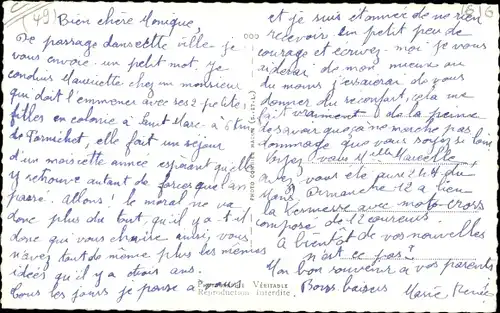 (49)
Bien chère Monique,
De passage dans cette ville je
vous envoie un petit mot, je
conduis Mauricette chez un monsieur
qui doit l'emmener avec ses 2 petites
filles en colonie à Saint Marc à 6 km
de Pornichet, elle fait un séjour
d'un mois cette année espérant qu'elle
y retrouve autant de forces que l'an
passé. Allons ! le moral ne va
donc plus du tout, qu'il y a t il
donc qui vous chavire ainsi, vous
n'avez tout de même plus les mêmes
idées qu'il y a trois ans.
Tous les jours je pense à vous
et je suis étonnée de ne rien
recevoir. Un petit peu de
courage et écrivez moi je vous
aiderai de mon mieux ou
du moins j'essaierai de vous
donner du réconfort, cela me
fait vraiment de la peine
de savoir que ça ne marche pas
dommage que vous soyez si loin
Voyez vous Melle Marcelle
avez vous été aux 24 H du
Mans Dimanche 12 a lieu
la Kermesse avec moto-cross
composé de 12 coureurs.
A bientôt de vos nouvelles
n'est ce pas ?
Mon bon souvenir à vos parents
Bons baisers Marie Renée
VÉRITABLE
Reproduction Interdite